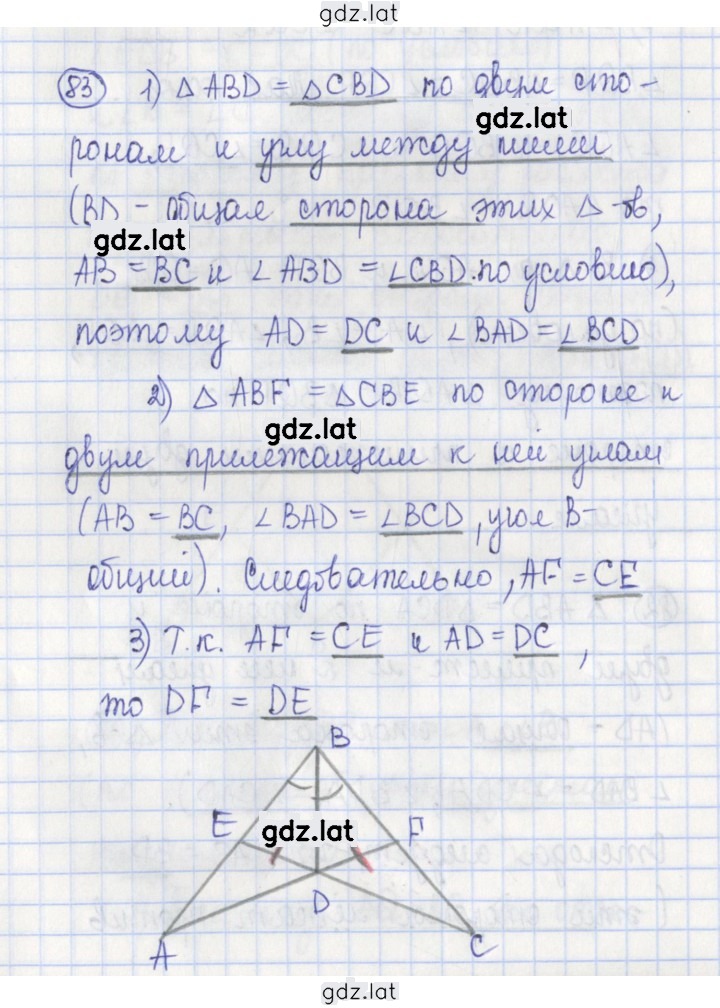 gdz.lat
83 1) △ ABD = △CBD по двум сто-
gdz.lat
ронам и углу между ними
(BD - общая сторона этих △-ов,
gdz.lat
AB = BC и ∠ABD = ∠CBD по условию),
поэтому AD = DC и ∠BAD = ∠BCD
2) △ ABF = △CBE по стороне и
gdz.lat
двум прилежащим к ней углам
(AB = BC, ∠BAD = ∠BCD, угол B-
общий). Следовательно, AF = CE
3) Т.к. AF = CE и AD = DC,
то DF = DE
B
E gdz.lat F
D
A C
gdz.lat